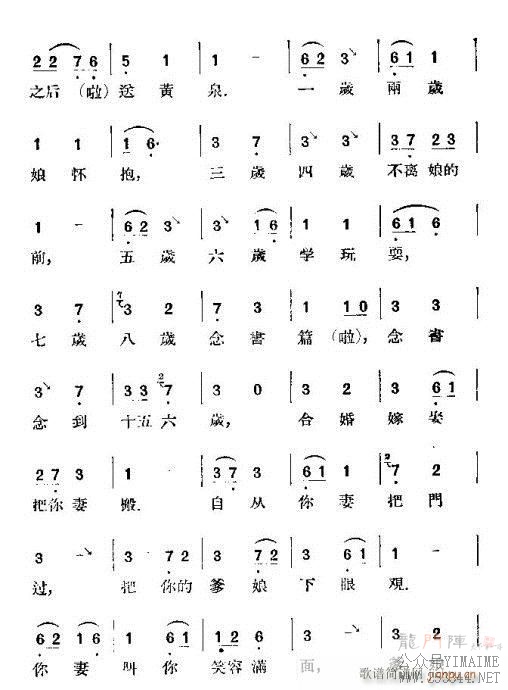 2 2 7 6 | 5 1 | 1 - | 6 2 3 | 3 6 2
之后(啦)送黄泉. 一歲兩歲
1 1 | 1 6 · | 3 7 | 3 3 | 3 7 2 3
娘怀抱, 三歲四歲不离娘的
1 - | 6 2 3 | 3 1 6 | 1 1 | 6 1 6
前, 五歲六歲学玩耍,
3 7 | 3 2 | 7 3 | 1 1 0 | 3 3
七歲八歲念書篇(啦), 念書
3 7 | 3 3 7 | 3 0 | 3 2 | 3 6 1
念到十五六歲, 合婚嫁娶
2 7 3 | 1 - | 3 7 3 | 6 1 1 | 7 2
把你妻搬. 自从你妻把門
3 - | 3 7 2 | 3 7 2 | 3 6 1 | 1 -
过, 把你的爹娘下眼观.
6 2 1 6 | 1 2 | 1 6 2 | 3
你妻叫你笑容满面,
公众号YIMAIME
歌谱简